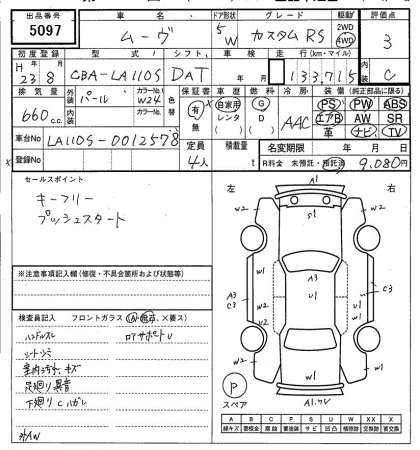 出品番号 車名 ドア形状 グレード 駆動 評価点
5097 ムーヴ 5W カスタムRS 2WD 4WD 3
初度登録 型式 シフト 車検 走行(km・マイル) 内装
H 23 8 CBA-LA110S DAT 年 月 133,715 C
排気量 外装 パール カラーNo. W24 色替 保証書 車歴 燃料 冷房 装備(純正部品に限る)
660 c.c. 内装 カラーNo. 有 無 自家用 レンタ G D AAC PS PW ABS
エアB AW SR
革 ナビ TV
車台No LA110S-0012578 定員 積載量 名変期限 年 月 日
登録No 4人 t R料金 未預託・預託済 9,080円
セールスポイント
キーフリー
プッシュスタート
左 右
※注意事項記入欄(修復・不具合箇所および状態等)
検査員記入 フロントガラス(A・飛石、×要ス)
ハンドルスレ ロアサポートU
シートシミ
室内汚れ キズ
足廻り異音
下廻りCハガレ
外AW
A1
W2 S1 W2
W1 A3 W1
A3 C3 W2 U1 C3
U2 W1
W2 W1 W1
P スペア A1.ワレ
A B C P S U W X XX X
線キズ 要板金 腐蝕 要塗装 サビ 凹凸 補修跡 要交換 交換済 要交換